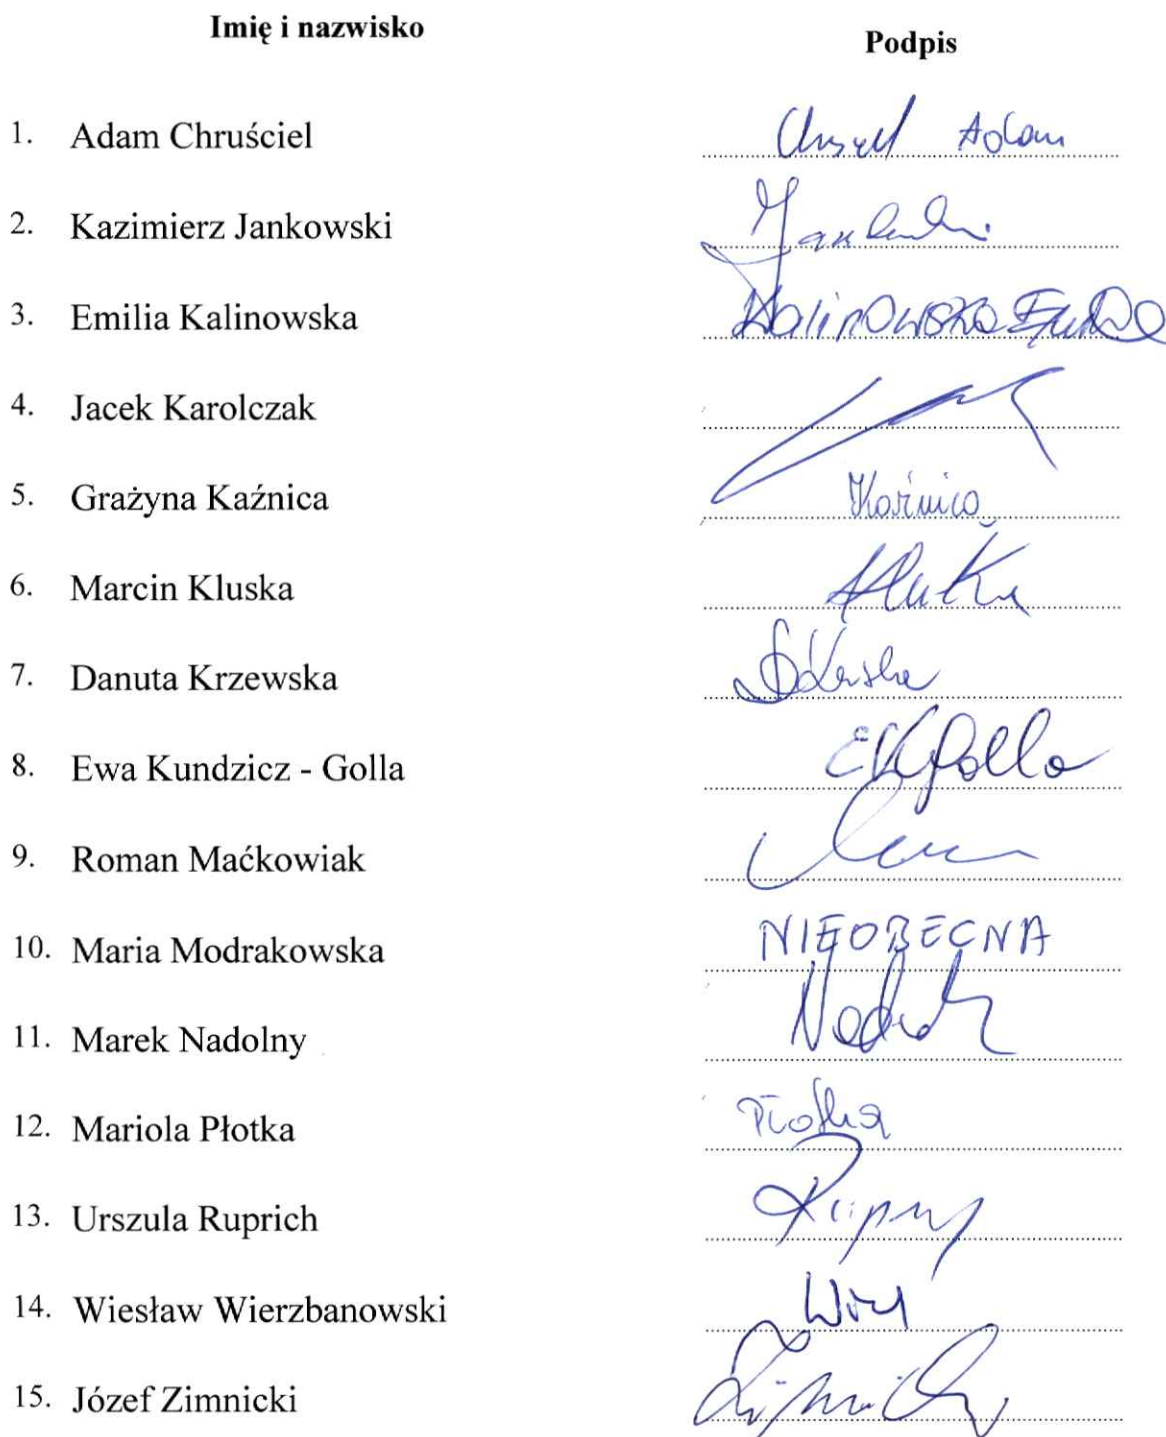 Imię i nazwisko Podpis
1. Adam Chruściel Adam
2. Kazimierz Jankowski
3. Emilia Kalinowska Kalinowska Emilia
4. Jacek Karolczak
5. Grażyna Kaźnica Kaźnica
6. Marcin Kluska
7. Danuta Krzewska
8. Ewa Kundzicz - Golla EKGolla
9. Roman Maćkowiak
10. Maria Modrakowska NIEOBECNA
11. Marek Nadolny
12. Mariola Płotka Płotka
13. Urszula Ruprich
14. Wiesław Wierzbanowski
15. Józef Zimnicki